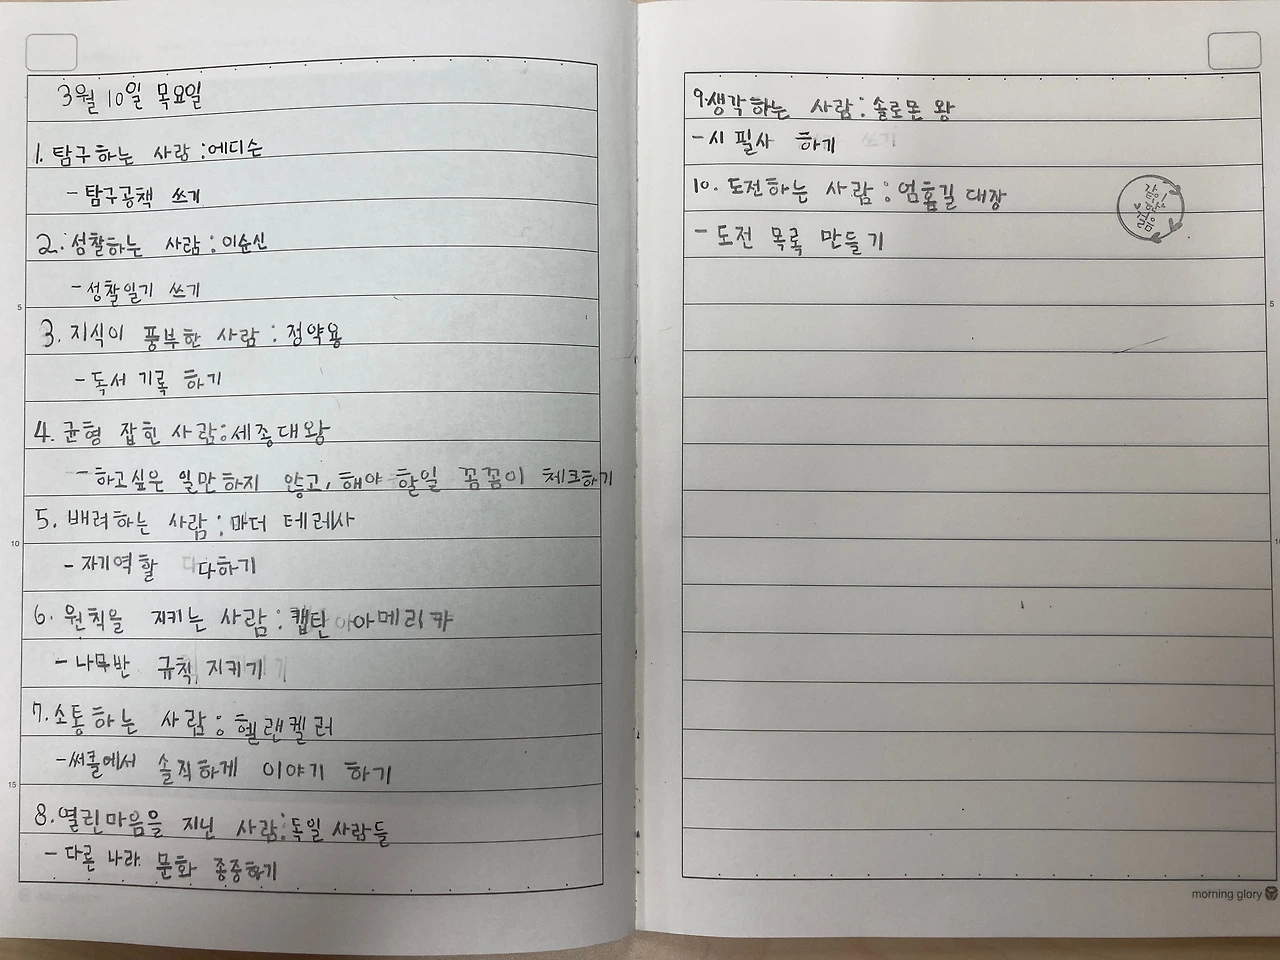 3월 10일 목요일
1. 탐구하는 사람:에디슨
- 탐구공책 쓰기
2. 성찰하는 사람:이순신
- 성찰일기 쓰기
3. 지식이 풍부한 사람:정약용
- 독서 기록 하기
4. 균형 잡힌 사람:세종대왕
- 하고싶은 일만하지 않고, 해야 할일 꼼꼼이 체크하기
5. 배려하는 사람:마더 테레사
- 자기역할 다하기
6. 원칙을 지키는 사람:캡틴 아메리카
- 나무반 규칙 지키기
7. 소통하는 사람:헬랜켈러
- 써클에서 솔직하게 이야기 하기
8. 열린마음을 지닌 사람:독일 사람들
- 다른 나라 문화 종중하기
5
10
15
9. 생각하는 사람:솔로몬 왕
- 시 필사 하기
10. 도전하는 사람:엄홍길 대장
- 도전 목록 만들기
같이
걸음
5
morning glory